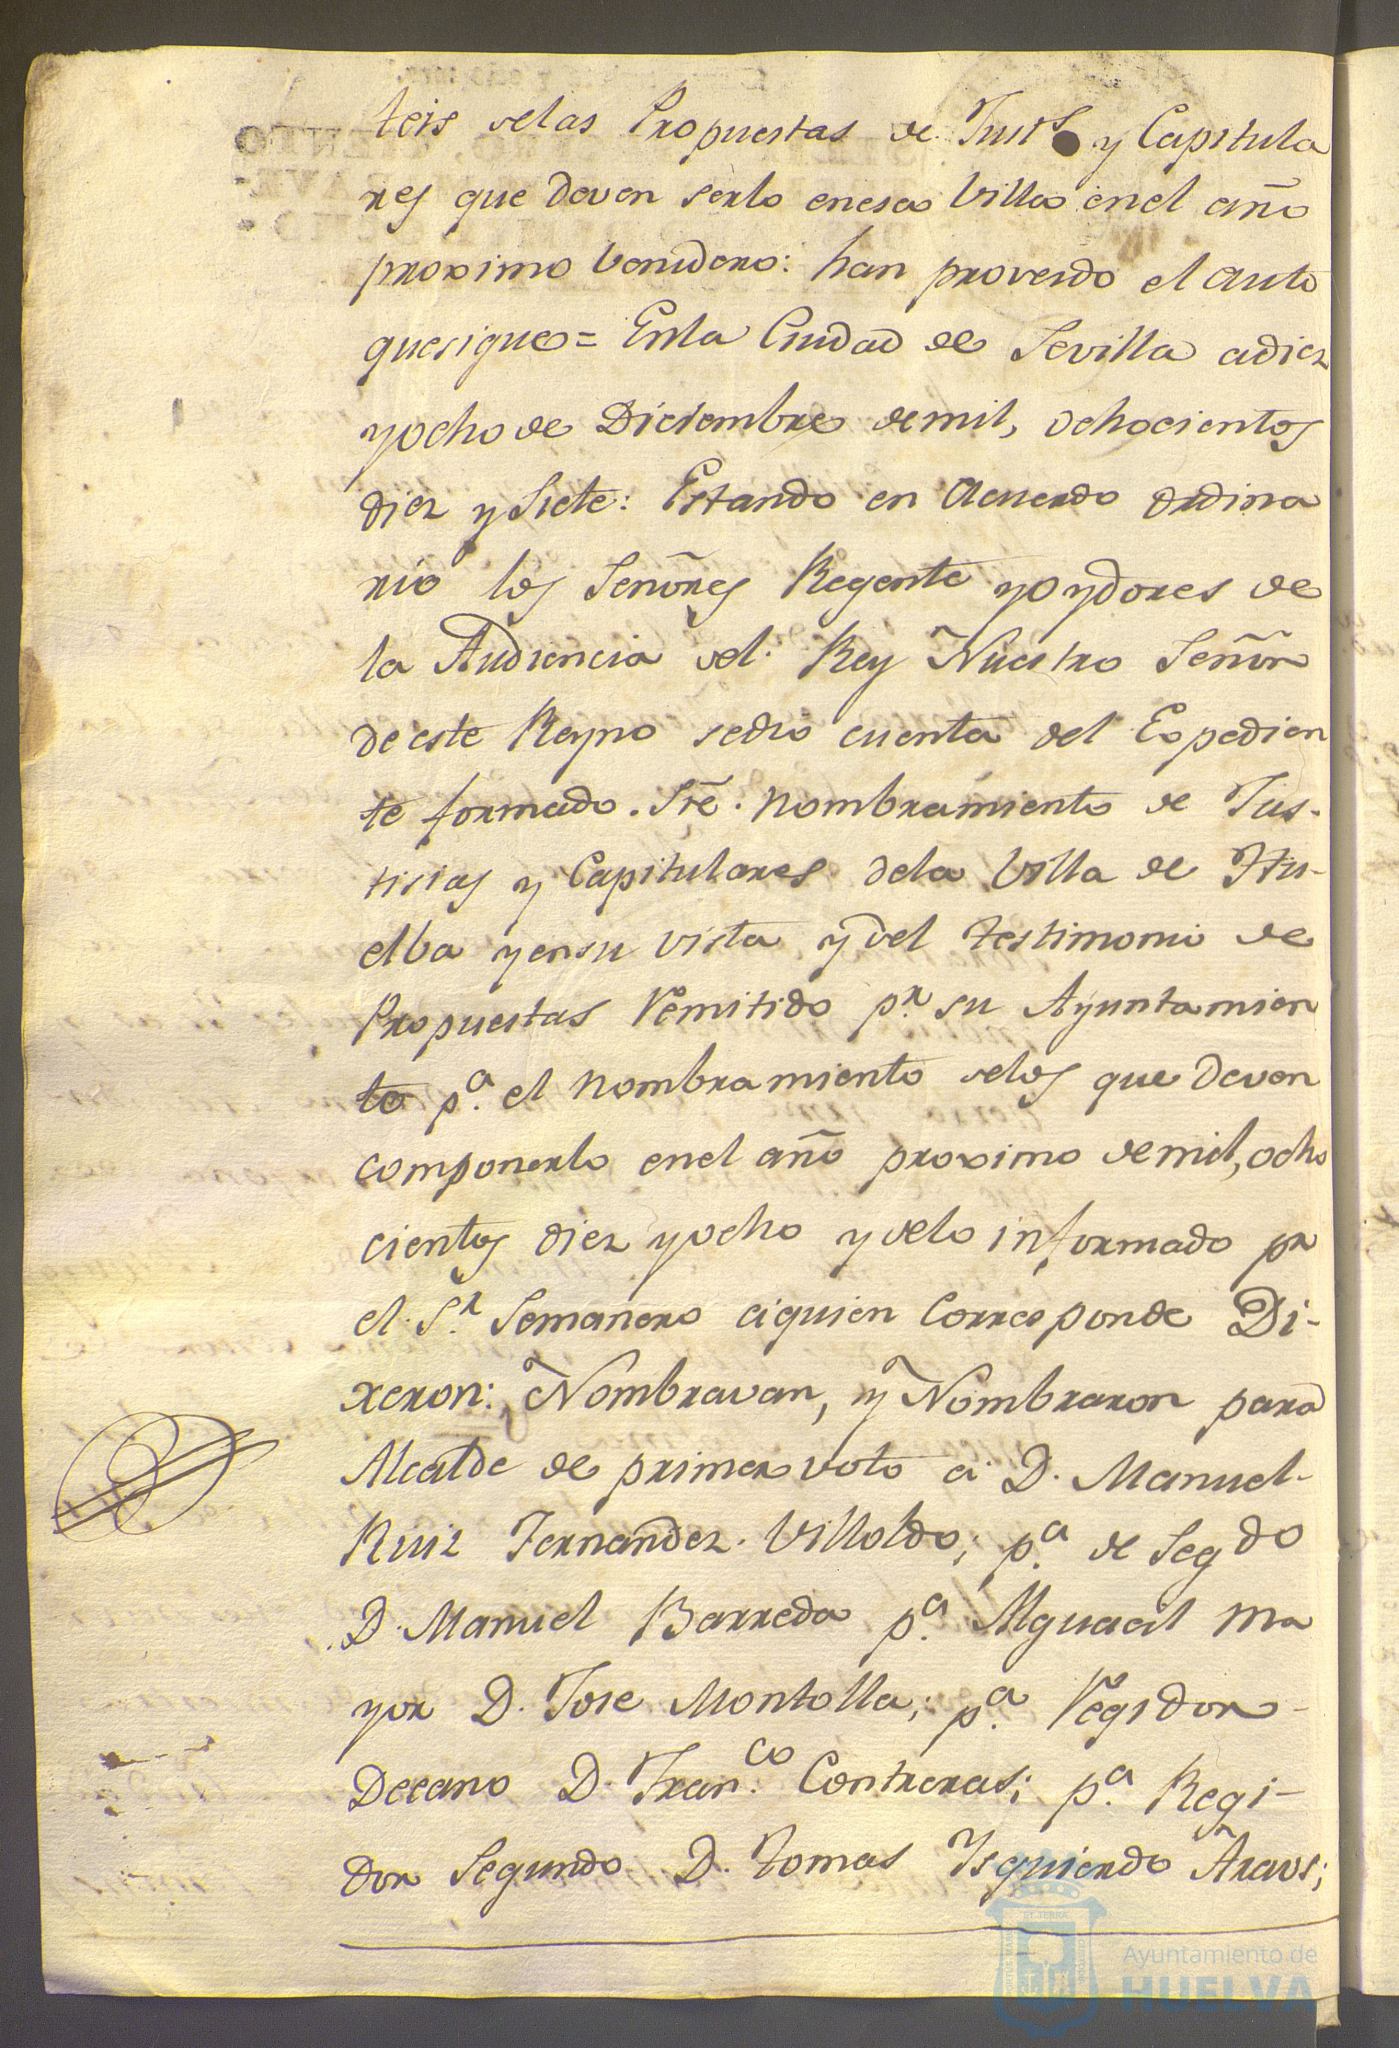 teis delas Propuestas de Justs y Capitula
res que deven serlo enesa Villa enel año
proximo benidero: han proveido el auto
quesigue= Enla Ciudad de Sevilla adiez
yocho de Diciembre demil, ochocientos
diez y siete: Estando en Acuerdo ordina
rio los Señores Regente yoydores de
la Audiencia del Rey Nuestro Señor
deeste Reyno sedio cuenta del Expedien
te formado. Sre. nombramiento de Jus-
tisias y Capitulares dela Villa de Hu-
elba yensu vista y del testimonio de
Propuestas Remitido pr. su Ayuntamien
to pa. el nombramiento delos que deven
componerlo enel año proximo demil, ocho
cientos diez yocho y delo informado pr
el Sr. Semanero aquien Corresponde Di-
xeron: Nombravan, y Nombraron para
Alcalde de primer voto a D. Manuel
Ruiz Fernandez Villoldo; pa. de Segdo
D. Manuel Barreda pa. Alguacil ma
yor D. Jose Montolla; pa. Regidor
Decano D. Franco. Contreras; pa. Regi-
dor Segundo D. Tomas Isquierdo Araus;
Ayuntamiento de
HUELVA